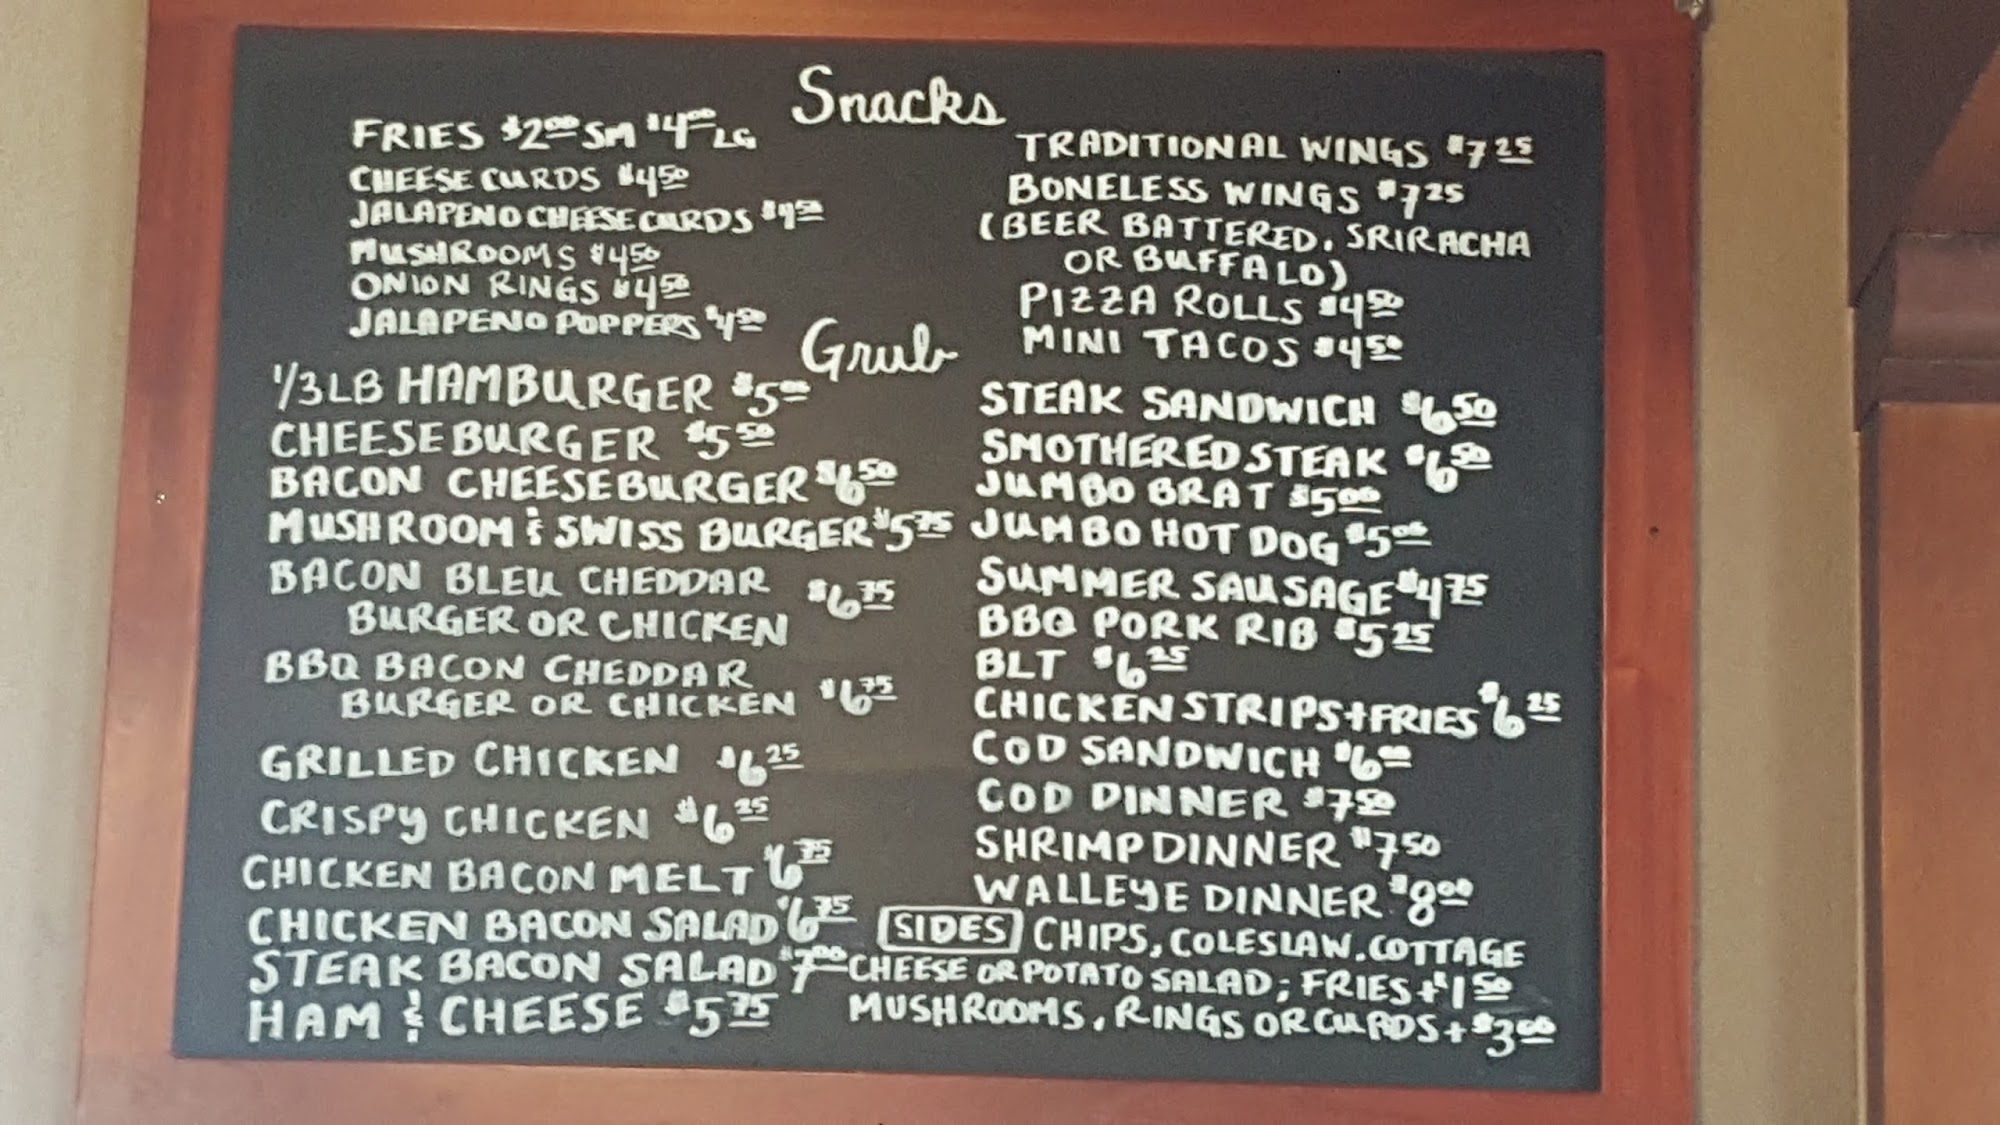 Snacks
FRIES $2.00 SM $4.00 LG
CHEESE CURDS $4.50
JALAPENO CHEESE CURDS $4.50
MUSHROOMS $4.50
ONION RINGS $4.50
JALAPENO POPPERS $4.50
TRADITIONAL WINGS $7.25
BONELESS WINGS $7.25
(BEER BATTERED, SRIRACHA
OR BUFFALO)
PIZZA ROLLS $4.50
MINI TACOS $4.50
Grub
1/3 LB HAMBURGER $5.00
CHEESEBURGER $5.50
BACON CHEESEBURGER $6.50
MUSHROOM & SWISS BURGER $5.75
BACON BLEU CHEDDAR
BURGER OR CHICKEN $6.75
BBQ BACON CHEDDAR
BURGER OR CHICKEN $6.75
GRILLED CHICKEN $6.25
CRISPY CHICKEN $6.25
CHICKEN BACON MELT $6.75
CHICKEN BACON SALAD $6.75
STEAK BACON SALAD $7.00
HAM & CHEESE $5.75
STEAK SANDWICH $6.50
SMOTHERED STEAK $6.50
JUMBO BRAT $5.00
JUMBO HOT DOG $5.00
SUMMER SAUSAGE $4.75
BBQ PORK RIB $5.25
BLT $6.25
CHICKEN STRIPS + FRIES $6.25
COD SANDWICH $6.00
COD DINNER $7.50
SHRIMP DINNER $7.50
WALLEYE DINNER $8.00
SIDES CHIPS, COLESLAW, COTTAGE
CHEESE OR POTATO SALAD; FRIES + $1.50
MUSHROOMS, RINGS OR CURDS + $3.00